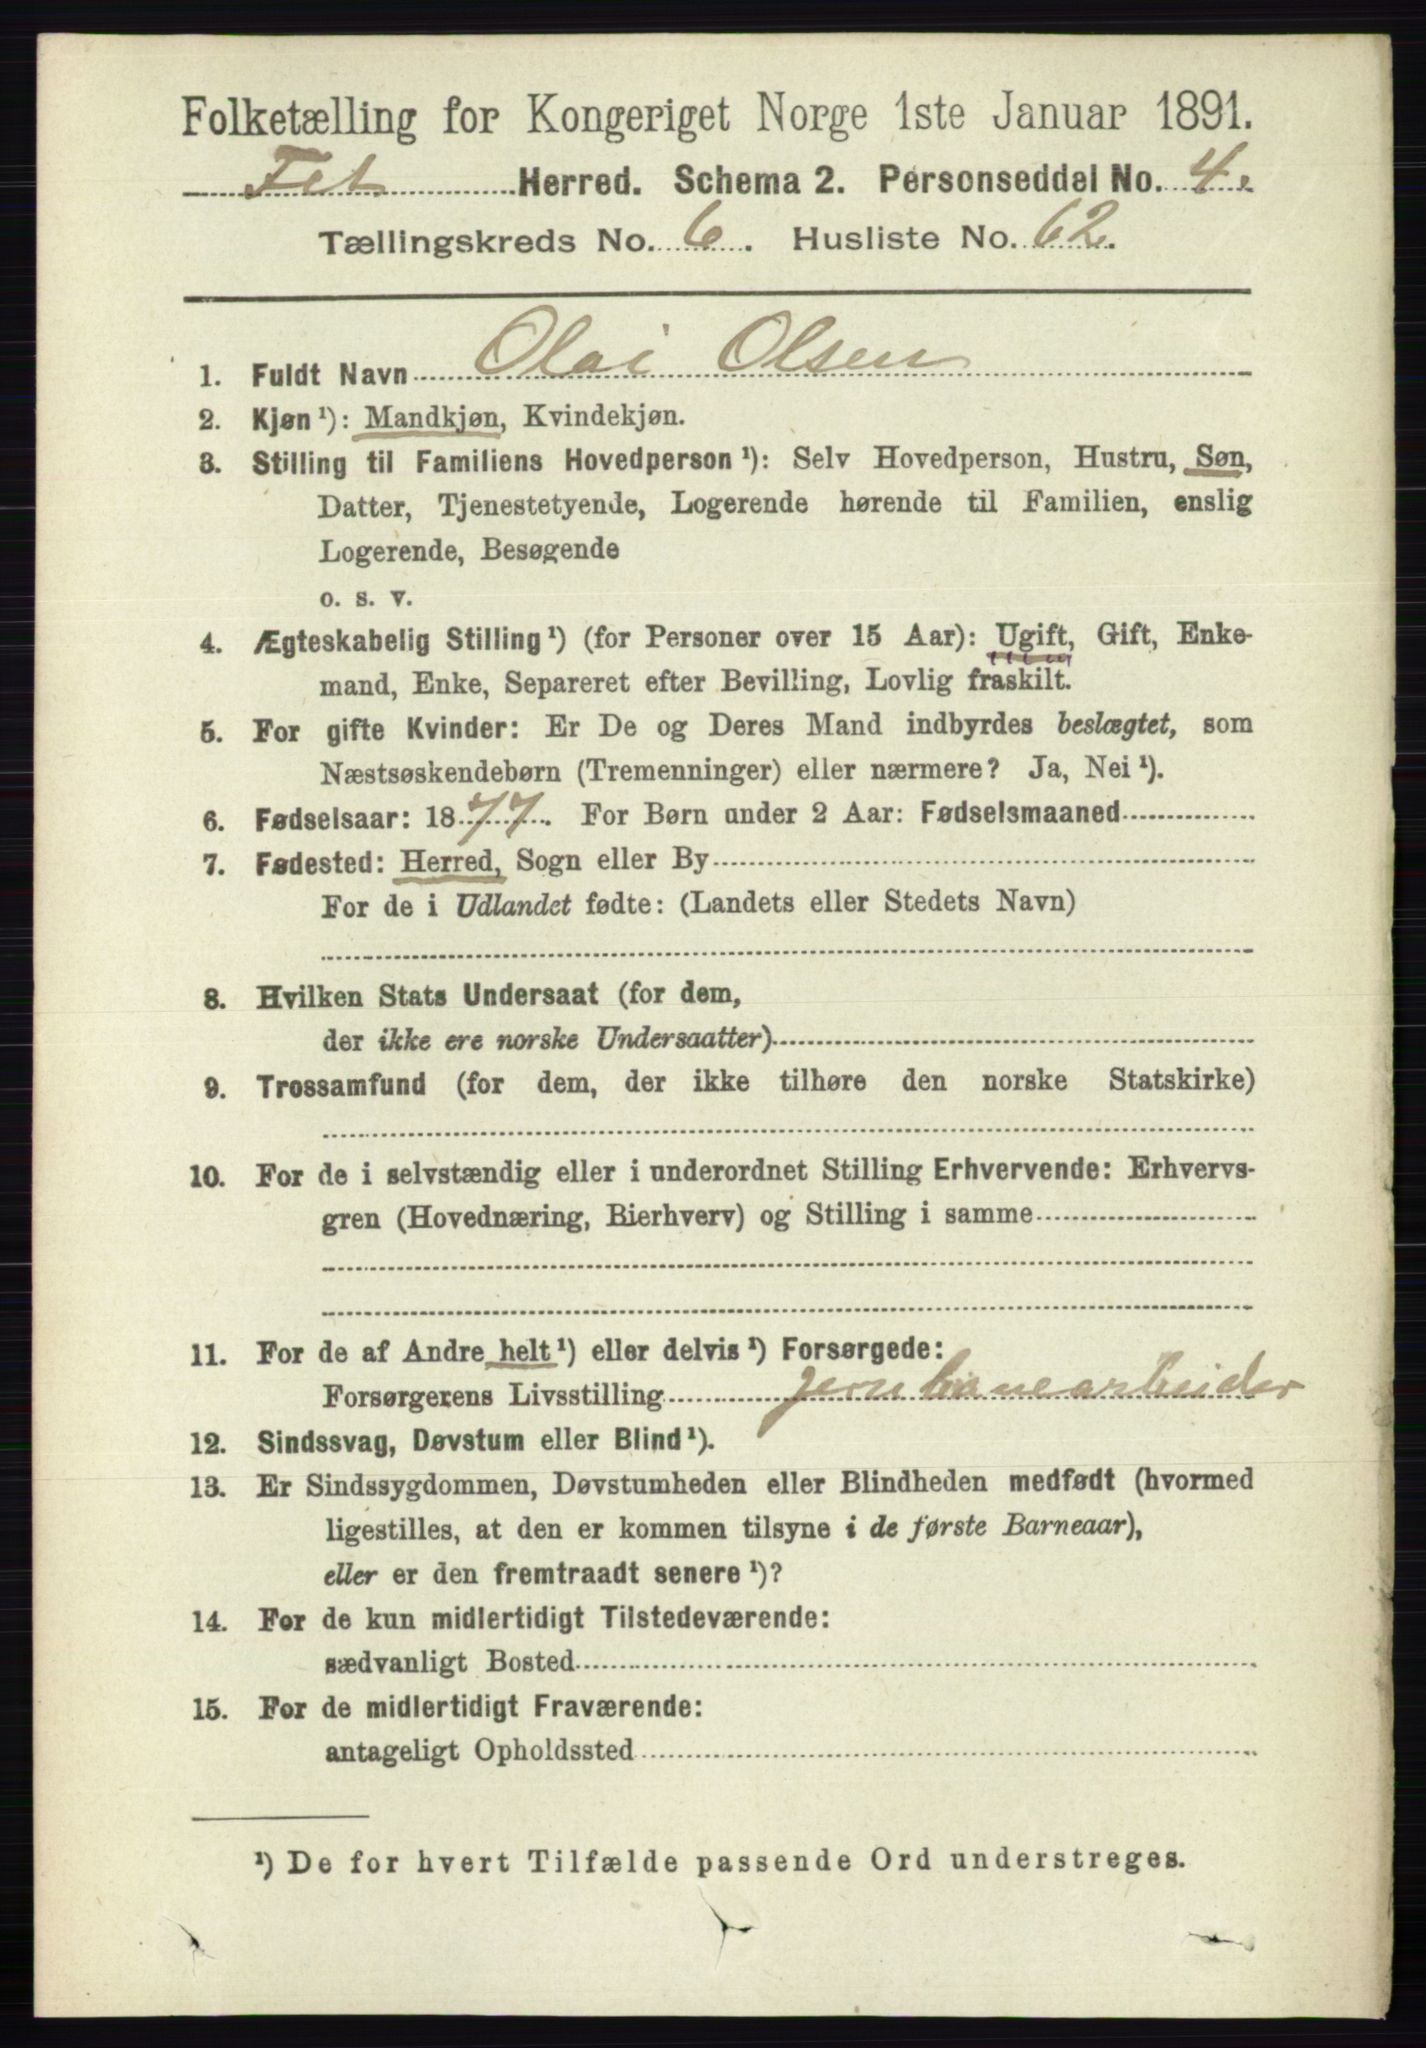 Folketælling for Kongeriget Norge 1ste Januar 1891.
Fet Herred. Schema 2. Personseddel No. 4.
Tællingskreds No. 6. Husliste No. 62.
1. Fuldt Navn Olai Olsen
2. Kjøn ¹): Mandkjøn, Kvindekjøn.
3. Stilling til Familiens Hovedperson ¹): Selv Hovedperson, Hustru, Søn,
Datter, Tjenestetyende, Logerende hørende til Familien, enslig
Logerende, Besøgende
o. s. v.
4. Ægteskabelig Stilling ¹) (for Personer over 15 Aar): Ugift, Gift, Enke-
mand, Enke, Separeret efter Bevilling, Lovlig fraskilt.
5. For gifte Kvinder: Er De og Deres Mand indbyrdes beslægtet, som
Næstsøskendebørn (Tremenninger) eller nærmere? Ja, Nei ¹).
6. Fødselsaar: 1877. For Børn under 2 Aar: Fødselsmaaned
7. Fødested: Herred, Sogn eller By
For de i Udlandet fødte: (Landets eller Stedets Navn)
8. Hvilken Stats Undersaat (for dem,
der ikke ere norske Undersaatter)
9. Trossamfund (for dem, der ikke tilhøre den norske Statskirke)
10. For de i selvstændig eller i underordnet Stilling Erhvervende: Erhvervs-
gren (Hovednæring, Bierhverv) og Stilling i samme
11. For de af Andre helt ¹) eller delvis ¹) Forsørgede:
Forsørgerens Livsstilling jernbanearbeider
12. Sindssvag, Døvstum eller Blind ¹).
13. Er Sindssygdommen, Døvstumheden eller Blindheden medfødt (hvormed
ligestilles, at den er kommen tilsyne i de første Barneaar),
eller er den fremtraadt senere ¹)?
14. For de kun midlertidigt Tilstedeværende:
sædvanligt Bosted
15. For de midlertidigt Fraværende:
antageligt Opholdssted
¹) De for hvert Tilfælde passende Ord understreges.